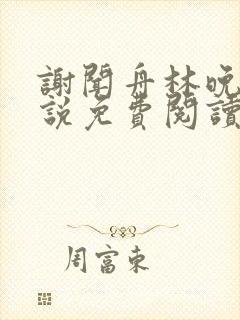 謝聞舟林晚
說免費閱讀
周富東